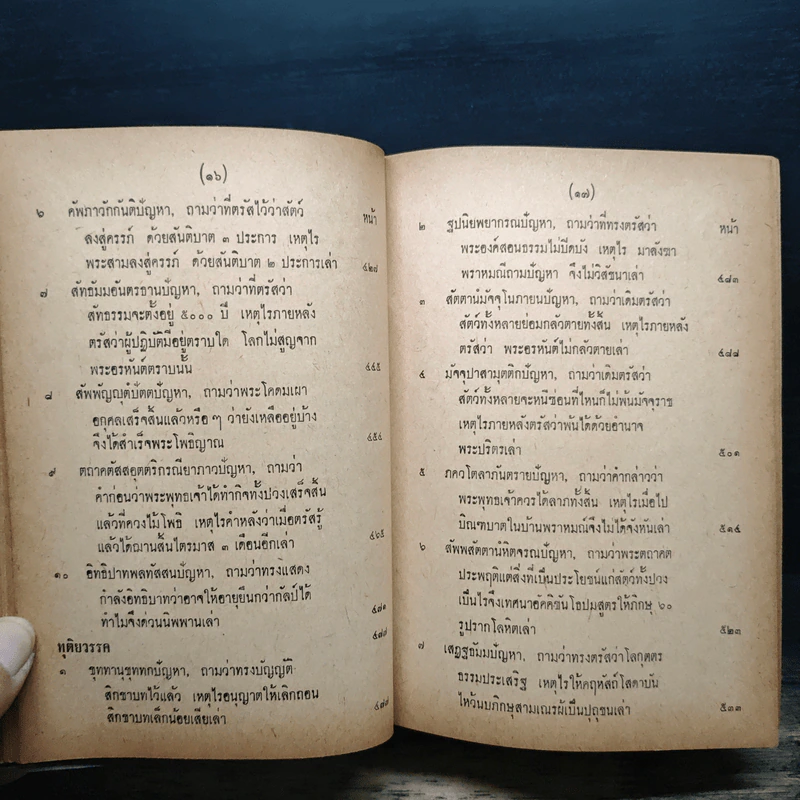 (๑๖)
หน้า
๖ คัพภาวักกันติปัญหา, ถามว่าที่ตรัสไว้ว่าสัตว์
ลงสู่ครรภ์ ด้วยสันติบาต ๓ ประการ เหตุไร
พระสามลงสู่ครรภ์ ด้วยสันติบาต ๒ ประการเล่า
๗ สัทธัมมอันตรธานปัญหา, ถามว่าที่ตรัสว่า
สัทธรรมจะตั้งอยู่ ๕๐๐๐ ปี เหตุไรภายหลัง
ตรัสว่าผู้ปฏิบัติมีอยู่ตราบใด โลกไม่สูญจาก
พระอรหันต์ตราบนั้น ๔๔๕
๘ สัพพัญญุตํปัตตปัญหา, ถามว่าพระโคดมเผา
อกุศลเสร็จสิ้นแล้วหรือ ๆ ว่ายังเหลืออยู่บ้าง
จึงได้สำเร็จพระโพธิญาณ ๔๕๔
๙ ตถาคตัสสอุตตริกรณียาภาวปัญหา, ถามว่า
คำก่อนว่าพระพุทธเจ้าได้ทำกิจทั้งปวงเสร็จสิ้น
แล้วที่ควงไม้โพธิ เหตุไรคำหลังว่าเมื่อตรัสรู้
แล้วได้ฌานสิ้นไตรมาส ๓ เดือนอีกเล่า ๔๖๕
๑๐ อิทธิปาทพลทัสสนปัญหา, ถามว่าทรงแสดง
กำลังอิทธิบาทว่าอาจให้อายุยืนกว่ากัลป์ได้
ทำไมจึงด่วนนิพพานเล่า ๔๗๑
ทุติยวรรค ๔๗๗
๑ ขุททานุขุททกปัญหา, ถามว่าทรงบัญญัติ
สิกขาบทไว้แล้ว เหตุไรอนุญาตให้เลิกถอน
สิกขาบทเล็กน้อยเสียเล่า ๔๗๗
(๑๗)
หน้า
๒ ฐปนิยพยากรณปัญหา, ถามว่าที่ทรงตรัสว่า
พระองค์สอนธรรมไม่ปิดบัง เหตุไร มาลังฆา
พราหมณีถามปัญหา จึงไม่วิสัชนาเล่า ๔๘๓
๓ สัตตานํมัจจุโนภายนปัญหา, ถามว่าเดิมตรัสว่า
สัตว์ทั้งหลายย่อมกลัวตายทั้งสิ้น เหตุไรภายหลัง
ตรัสว่า พระอรหันต์ไม่กลัวตายเล่า ๔๘๘
๔ มัจจุปาสามุตติกปัญหา, ถามว่าเดิมตรัสว่า
สัตว์ทั้งหลายจะหนีซ่อนที่ไหนก็ไม่พ้นมัจจุราช
เหตุไรภายหลังตรัสว่าพ้นได้ด้วยอำนาจ
พระปริตรเล่า ๕๐๑
๕ ภควโตลาภันตรายปัญหา, ถามว่าคำกล่าวว่า
พระพุทธเจ้าควรได้ลาภทั้งสิ้น เหตุไรเมื่อไป
บิณฑบาตในบ้านพราหมณ์จึงไม่ได้จังหันเล่า ๕๑๔
๖ สัพพสัตตานํหิตจรณปัญหา, ถามว่าพระตถาคต
ประพฤติแต่สิ่งที่เป็นประโยชน์แก่สัตว์ทั้งปวง
เป็นไรจึงเทศนาอัคคิขันโธปมสูตรให้ภิกษุ ๖๐
รูปรากโลหิตเล่า ๕๒๓
๗ เสฏฐธัมมปัญหา, ถามว่าทรงตรัสว่าโลกุตตร
ธรรมประเสริฐ เหตุไรให้คฤหัสถ์โสดาบัน
ไหว้นบภิกษุสามเณรผู้เป็นปุถุชนเล่า ๕๓๓